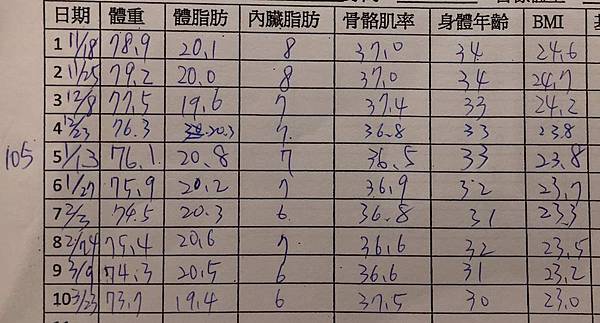 日期 體重 體脂肪 內臟脂肪 骨骼肌率 身體年齡 BMI
1 11/18 78.9 20.1 8 37.0 34 24.6
2 11/25 79.2 20.0 8 37.0 34 24.7
3 12/8 77.5 19.6 7 37.4 33 24.2
4 12/23 76.3 20.3 7 36.8 33 23.8
105 5 1/13 76.1 20.8 7 36.5 33 23.8
6 1/27 75.9 20.2 7 36.9 32 23.7
7 2/3 74.5 20.3 6 36.8 31 23.3
8 2/24 75.4 20.6 7 36.6 32 23.5
9 3/9 74.3 20.5 6 36.6 31 23.2
10 3/23 73.7 19.4 6 37.5 30 23.0